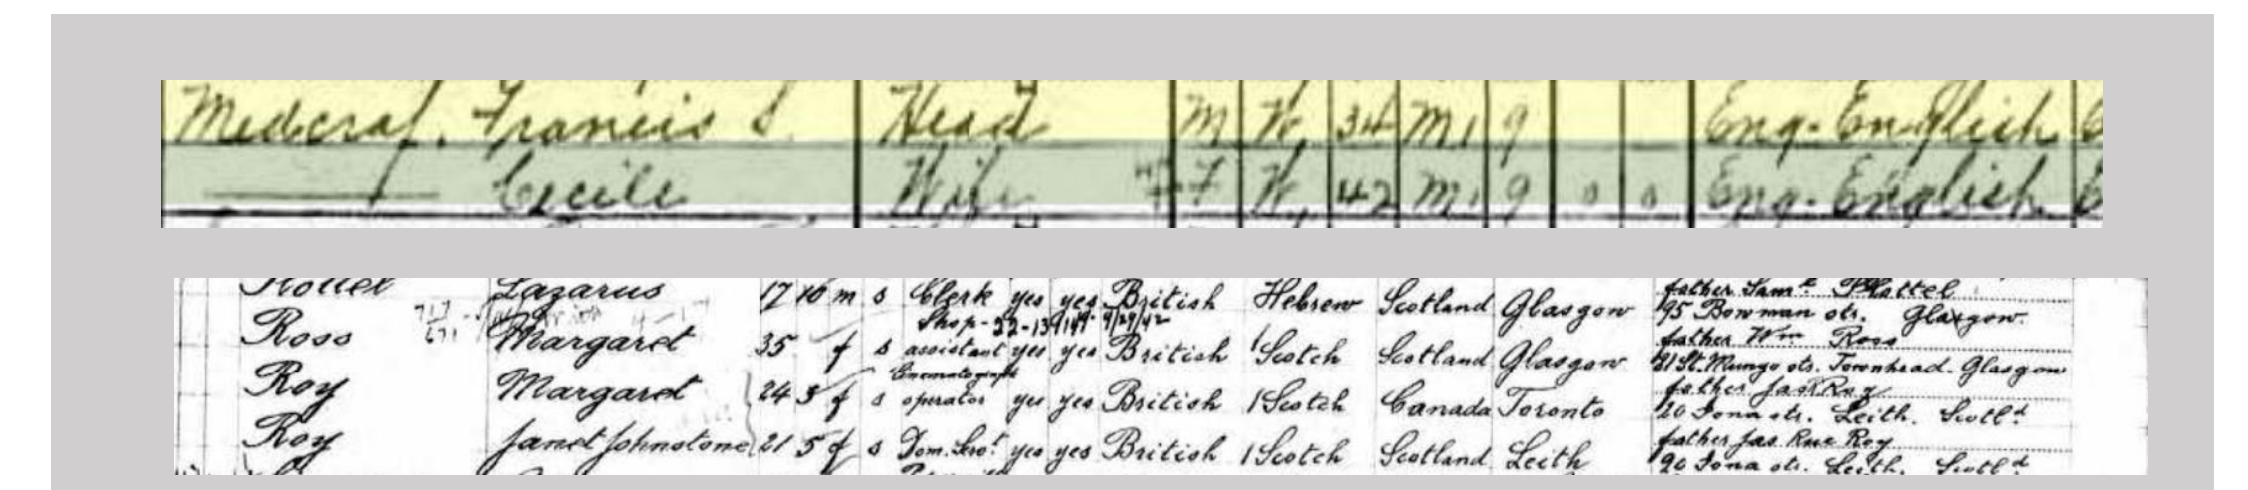 Medcraf. Francis S. Head M W. 34 M. 9 Eng. English
Cecile Wife F W. 42 M. 9 0 0 Eng. English
Lazarus 17 10 m s Clerk yes yes British Hebrew Scotland Glasgow father Saml.
95 Bowman str. Glasgow.
Ross Margaret 35 f s Shop assistant yes yes British Scotch Scotland Glasgow father Wm Ross
81 St. Mungo str. Townhead. Glasgow
Roy Margaret 24 5 f s Cinematograph operator yes yes British Scotch Canada Toronto father Jas Roy
20 Iona str. Leith. Scotld
Roy Janet Johnstone 21 5 f s Dom. Servt. yes yes British Scotch Scotland Leith father Jas Rue Roy
20 Iona str. Leith. Scotld